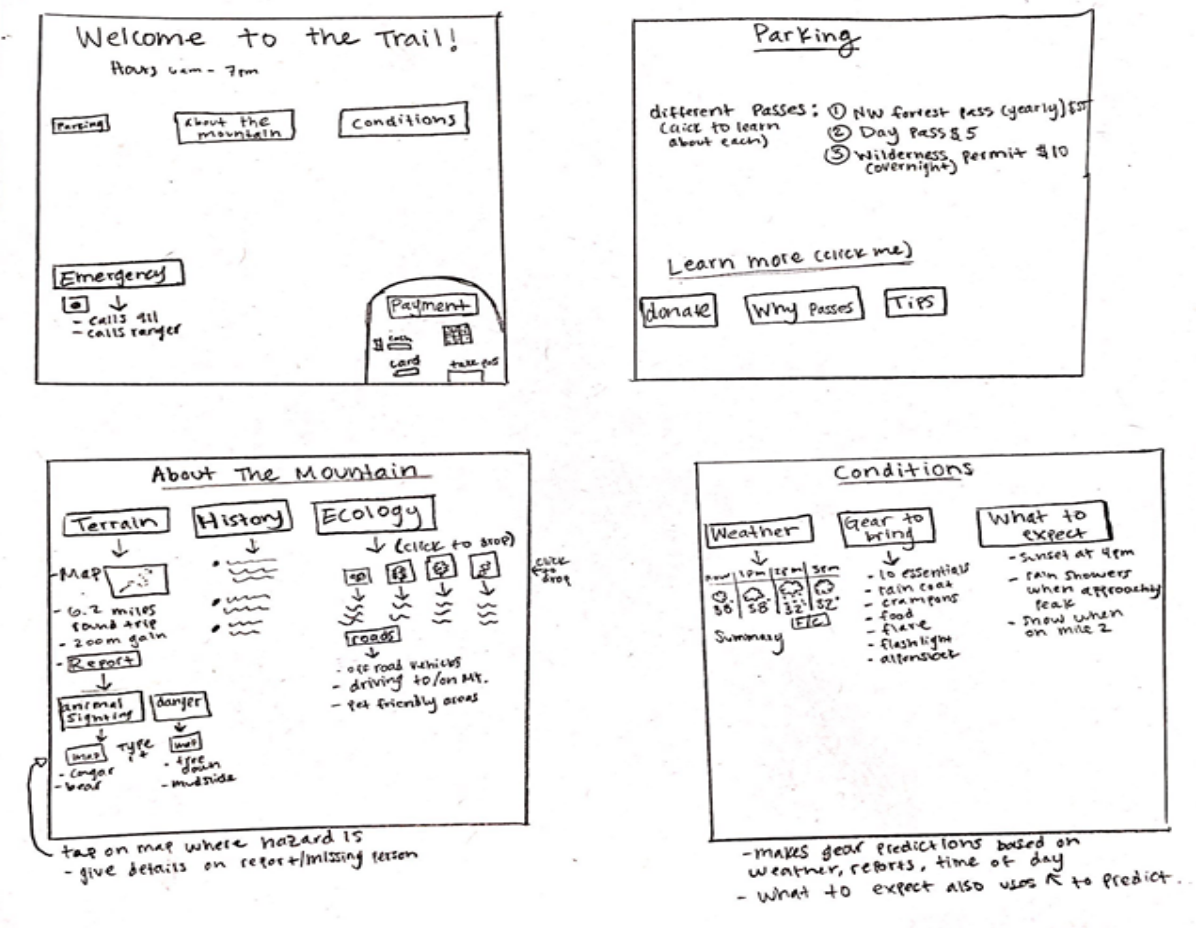 Welcome to the Trail!
Hours 6am - 7pm
Parking
About the
mountain
Conditions
Emergency
- calls 911
- calls ranger
Payment
$ cash
card
take pass
Parking
different Passes:
(click to learn
about each)
① NW forrest pass (yearly)
② Day Pass $5
③ Wilderness permit $10
(overnight)
Learn more (click me)
donate
Why Passes
Tips
About The Mountain
Terrain
- Map
- 6.2 miles
round trip
- 200m gain
- Report
animal
sighting
danger
map
Type
it
map
- cougar
- bear
- tree
down
- mudslide
History
Ecology
(click to drop)
click
to
drop
roads
- off road vehicles
- driving to/on Mt.
- pet friendly areas
tap on map where hazard is
- give details on report/missing person
Conditions
Weather
now 1pm 2pm 3pm
38° 38° 32° 32°
F/C
Summary
Gear to
bring
- 10 essentials
- rain coat
- crampons
- food
- flare
- flashlight
What to
expect
- sunset at 4pm
- rain showers
when approaching
peak
- snow when
on mile 2
- makes gear predictions based on
weather, reports, time of day
- What to expect also uses ↖ to predict.